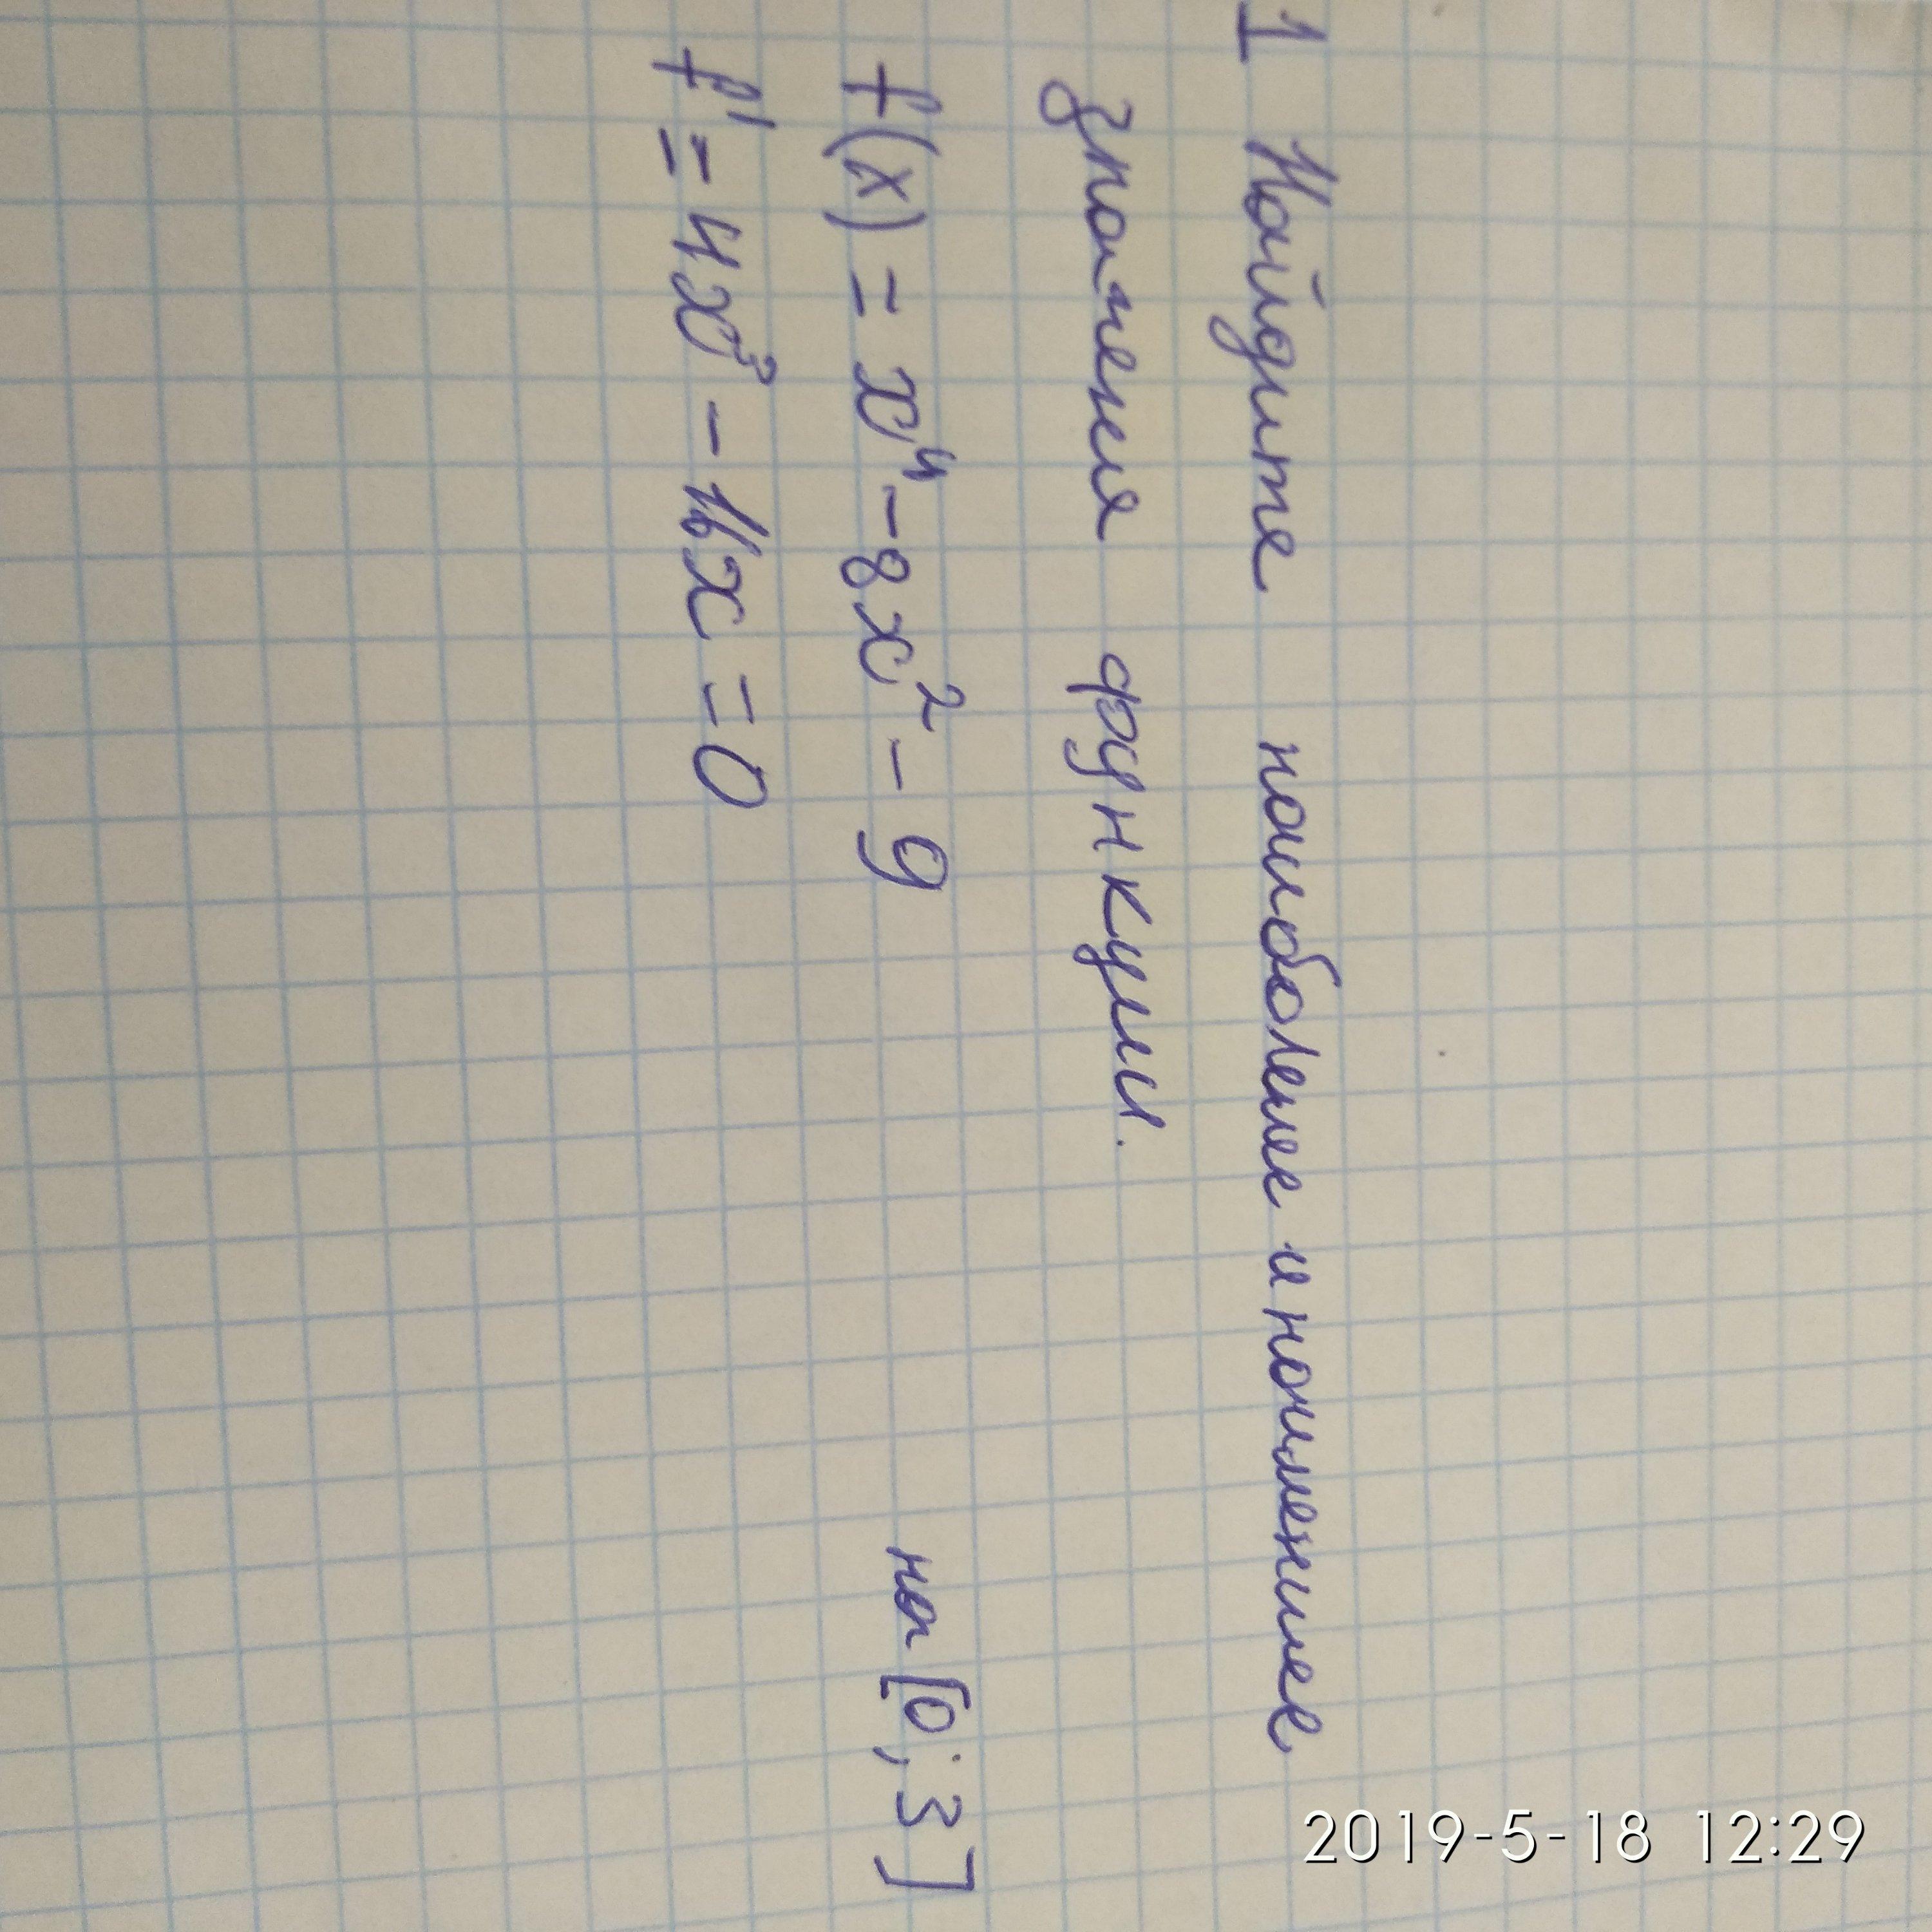 1 Найдите наибольшее и наименьшее
значения функции.
f(x) = x⁴ - 8x² - 9 на [0; 3]
f' = 4x³ - 16x = 0
2019-5-18 12:29